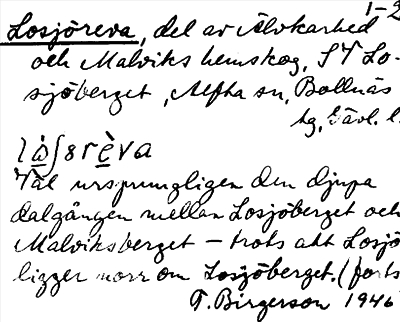 1-2
Losjöreva, del av Älvkarhed
och Malviks hemskog, S T Lo-
sjöberget, Alfta sn, Bollnäs
tg, Gävl. l.
lòʃɵrèva
Väl ursprungligen den djupa
dalgången mellan Losjöberget och
Malviksberget – trots att Losjö
ligger norr om Losjöberget. (forts
T. Birgerson 1946